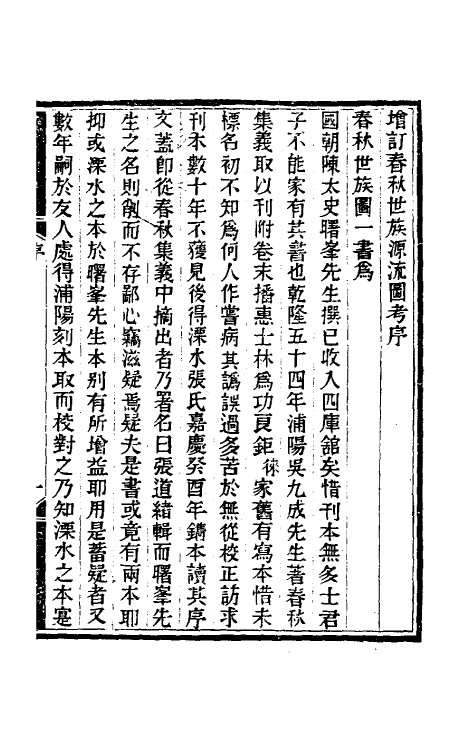 增訂春秋世族源流圖考序
春秋世族圖一書爲
國朝陳太史曙峯先生撰已收入四庫舘矣惜刊本無多士君
子不能家有其書也乾隆五十四年浦陽吳九成先生著春秋
集義取以刊附卷末播惠士林爲功良鉅徠家舊有寫本惜未
標名初不知爲何人作嘗病其譌誤過多苦於無從校正訪求
刊本數十年不獲見後得溧水張氏嘉慶癸酉年鐫本讀其序
文蓋卽從春秋集義中摘出者乃署名曰張道緒輯而曙峯先
生之名則劊而不存鄙心竊滋疑焉疑夫是書或竟有兩本耶
抑或溧水之本於曙峯先生本别有所增益耶用是蓄疑者又
數年嗣於友人處得浦陽刻本取而校對之乃知溧水之本寔
序
一